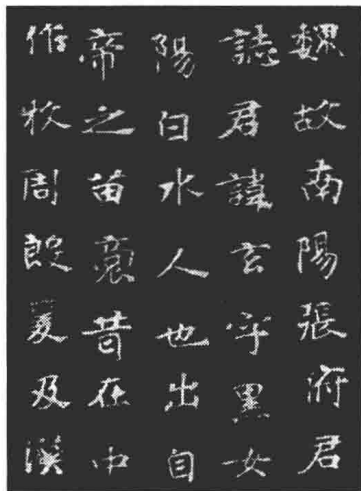 魏故南陽張府君
誌君諱玄字黑女
陽白水人也出自
帝之苗裔昔在中
作牧周殷爰及漢